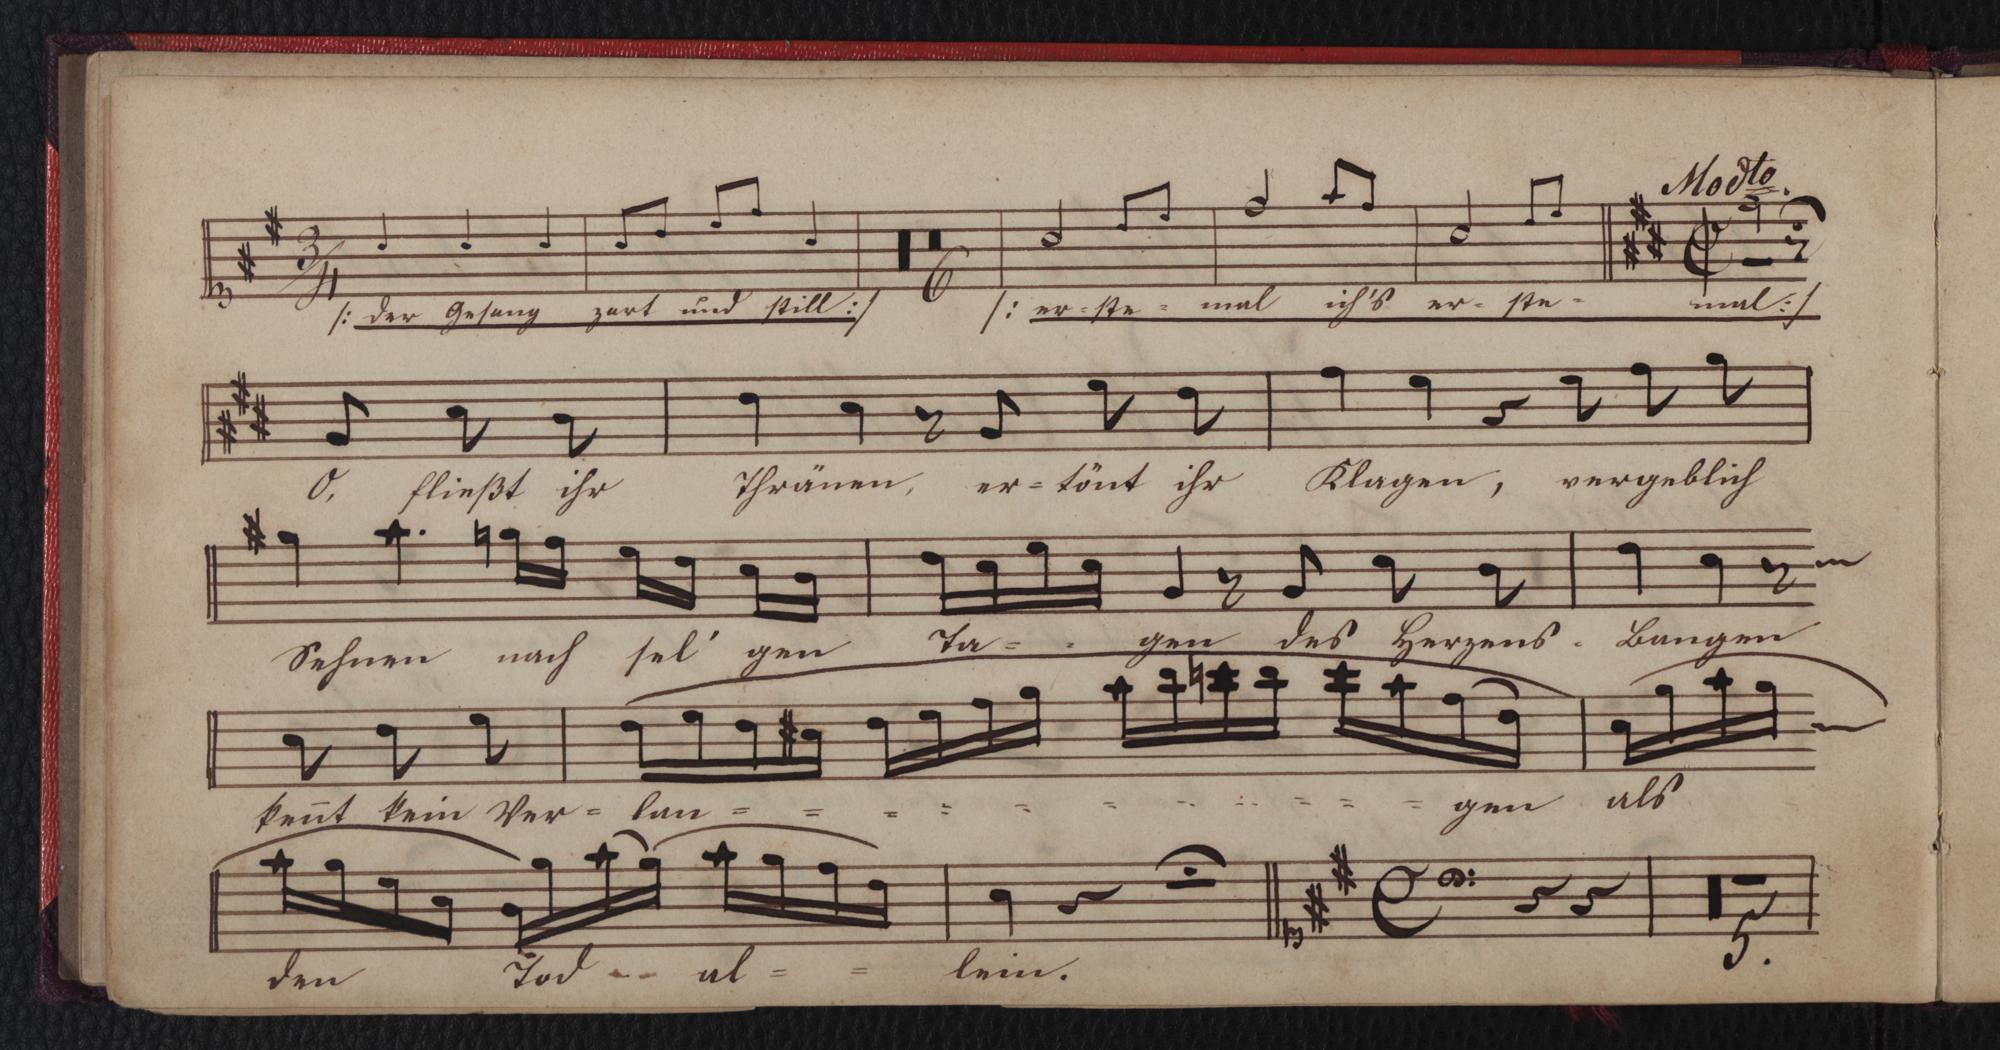 Modto.
3/4
6
/: der Gesang zart und still :/ /: er-ste- mal ich's er-ste- mal :/
O, fließt ihr Thränen, er=tönt ihr Klagen, vergeblich
Sehnen nach sel' gen Ta= - gen des Herzens - Bangen
keñt kein Ver= lan= = = = = = = = = = = gen als
5.
den Tod -- al = = lein.